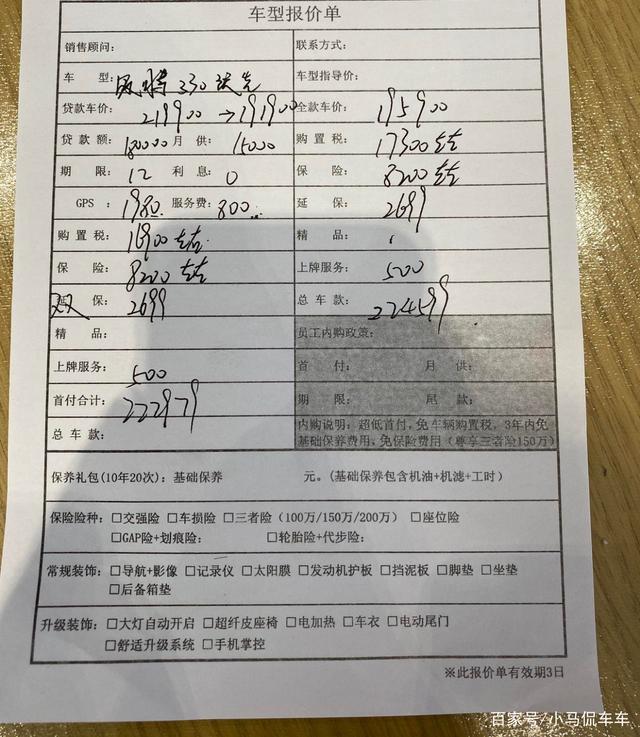 车型报价单
销售顾问: 联系方式:
车 型: 330 车型指导价:
贷款车价: 219900→191900 全款车价: 195900
贷款额: 180000 月供: 15000 购置税: 17300左右
期 限: 12 利息: 0 保 险: 8200左右
GPS: 1980 服务费: 800 延 保: 2699
购置税: 16900左右 精 品:
保 险: 8200左右 上牌服务: 500
延 保: 2699 总车款: 224599
精 品: 员工内购政策:
上牌服务: 500 首 付: 月 供:
首付合计: 222979 期 限: 尾 款:
总车款: 内购说明: 超低首付, 免车辆购置税, 3年内免
基础保养费用, 免保险费用(尊享三者险150万)
保养礼包(10年20次): 基础保养 元。(基础保养包含机油+机滤+工时)
保险险种: □交强险 □车损险 □三者险(100万/150万/200万) □座位险
□GAP险+划痕险: □轮胎险+代步险:
常规装饰: □导航+影像 □记录仪 □太阳膜 □发动机护板 □挡泥板 □脚垫 □坐垫
□后备箱垫
升级装饰: □大灯自动开启 □超纤皮座椅 □电加热 □车衣 □电动尾门
□舒适升级系统 □手机掌控
※此报价单有效期3日
百家号/小马侃车车